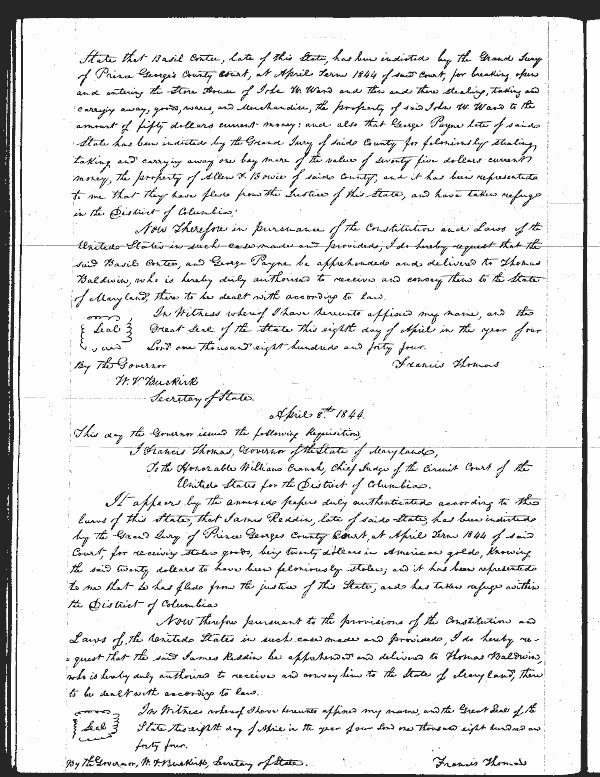 State that Basil Contee, late of this State, has been indicted by the Grand Jury
of Prince George's County Court, at April Term 1844 of said Court, for breaking open
and entering the Store House of John W. Ward and then and there stealing, taking and
carrying away, goods, wares, and Merchandise, the property of said John W. Ward to the
amount of fifty dollars current money: and also that George Payne late of said
State has been indicted by the Grand Jury of said County for feloniously stealing,
taking and carrying away one bay mare of the value of seventy five dollars current
money, the property of Allen & Bowie of said County; and it has been represented
to me that they have fled from the Justice of this State, and have taken refuge
in the District of Columbia:
Now Therefore in pursuance of the Constitution and Laws of the
United States in such case made and provided, I do hereby request that the
said Basil Contee, and George Payne be apprehended and delivered to Thomas
Baldwin, who is hereby duly authorised to receive and convey them to the State
of Maryland, there to be dealt with according to law.
In Witness whereof I have hereunto affixed my name, and the
Seal
Great Seal of the State this eighth day of April in the year of our
Lord one thousand eight hundred and forty four.
By the Governor
Francis Thomas
W. V Buskirk
Secretary of State
April 8.th 1844
This day the Governor issued the following Requisition,
I Francis Thomas, Governor of the State of Maryland,
To the Honorable William Cranch, Chief Judge of the Circuit Court of the
United States for the District of Columbia.
It appears by the annexed papers duly authenticated according to the
laws of this State, that James Reddin, late of said State, has been indicted
by the Grand Jury of Prince Georges County Court, at April Term 1844 of said
Court, for receiving stolen goods, being twenty dollars in American gold, Knowing
the said twenty dollars to have been feloniously stolen; and it has been represented
to me that he has fled from the justice of this State, and has taken refuge within
the District of Columbia
Now therefore pursuant to the provisions of the Constitution and
Laws of the United States in such case made and provided, I do hereby re-
=quest that the said James Reddin be apprehended and delivered to Thomas Baldwin,
who is hereby duly authorized to receive and convey him to the State of Maryland, there
to be dealt with according to law.
In Witness whereof I have hereunto affixed my name, and the Great Seal of the
Seal
State this eighth day of April in the year of our Lord one thousand eight hundred and
forty four.
By the Governor, W. V Buskirk, Secretary of State.
Francis Thomas